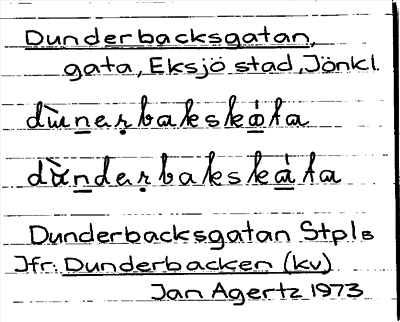 Dunderbacksgatan,
gata, Eksjö stad, Jönkl.
dùnerbakskáta
dùnderbakskàta
Dunderbacksgatan StplB
Jfr: Dunderbacken (kv)
Jan Agertz 1973